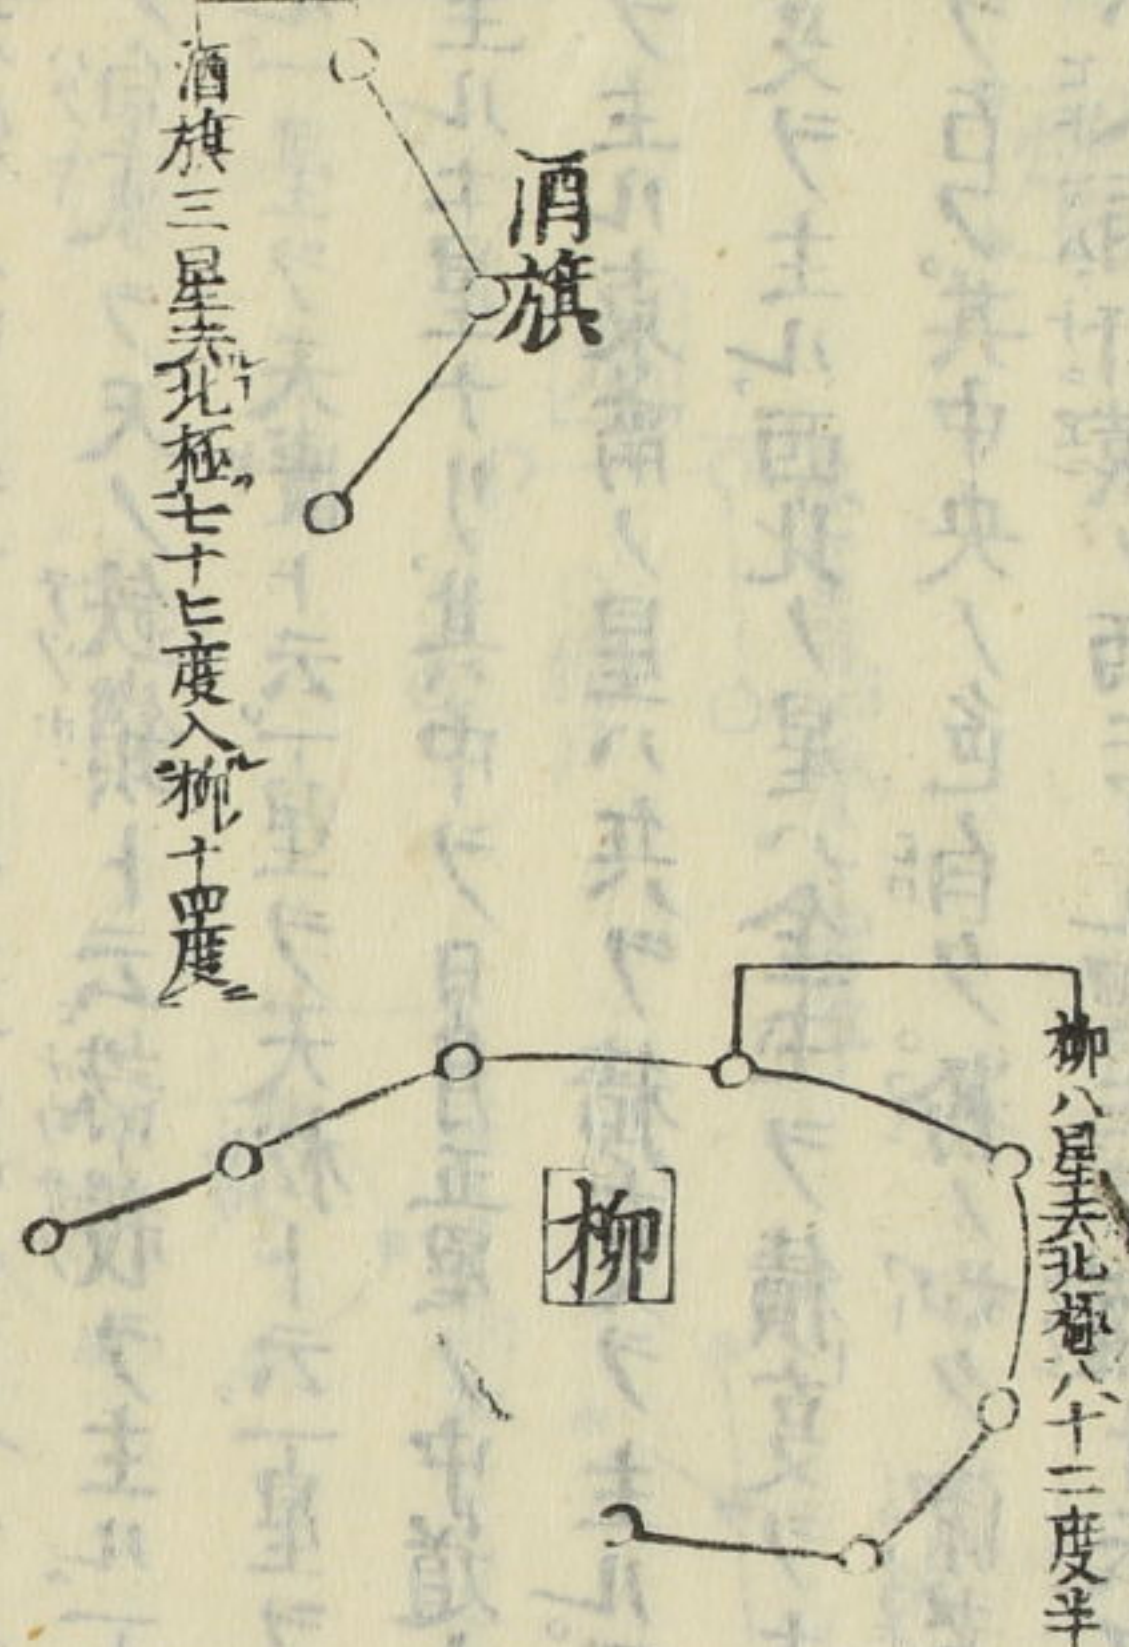 柳八星去北極八十二度半
柳
酒旗
酒旗三星去ルヿ北極ヲ七十七度入ル柳ニ十四度